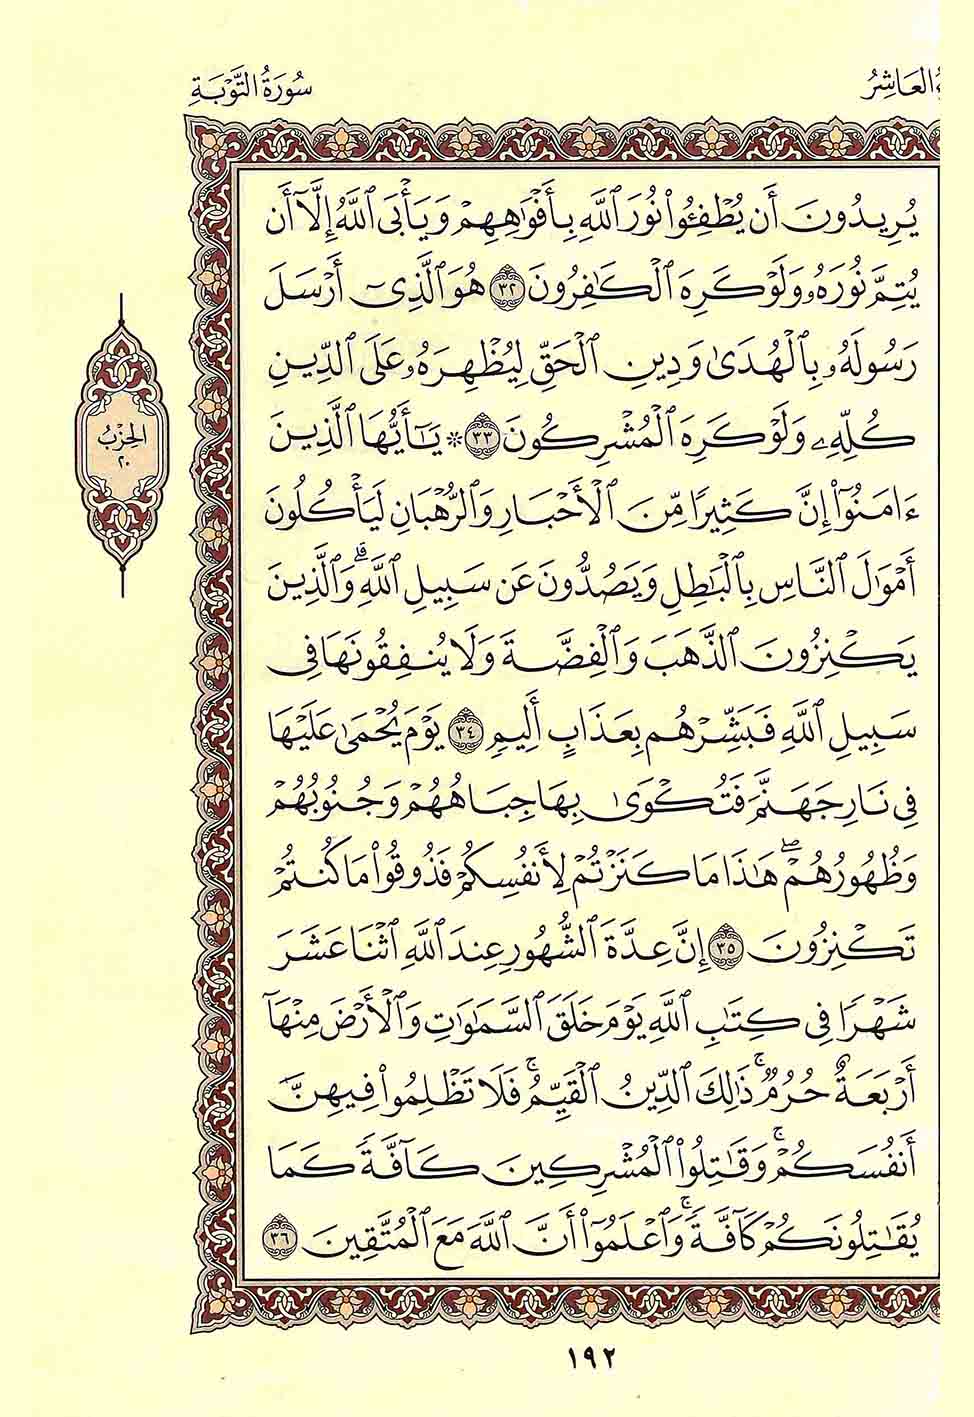 ءُ العَاشِرُ
سُورَةُ التَّوْبَةِ
يُرِيدُونَ أَن يُطْفِـُٔوا۟ نُورَ ٱللَّهِ بِأَفْوَٰهِهِمْ وَيَأْبَى ٱللَّهُ إِلَّآ أَن
يُتِمَّ نُورَهُۥ وَلَوْ كَرِهَ ٱلْكَٰفِرُونَ ٣٢ هُوَ ٱلَّذِىٓ أَرْسَلَ
رَسُولَهُۥ بِٱلْهُدَىٰ وَدِينِ ٱلْحَقِّ لِيُظْهِرَهُۥ عَلَى ٱلدِّينِ
كُلِّهِۦ وَلَوْ كَرِهَ ٱلْمُشْرِكُونَ ٣٣ * يَٰٓأَيُّهَا ٱلَّذِينَ
ءَامَنُوٓا۟ إِنَّ كَثِيرًا مِّنَ ٱلْأَحْبَارِ وَٱلرُّهْبَانِ لَيَأْكُلُونَ
أَمْوَٰلَ ٱلنَّاسِ بِٱلْبَٰطِلِ وَيَصُدُّونَ عَن سَبِيلِ ٱللَّهِ ۗ وَٱلَّذِينَ
يَكْنِزُونَ ٱلذَّهَبَ وَٱلْفِضَّةَ وَلَا يُنفِقُونَهَا فِى
سَبِيلِ ٱللَّهِ فَبَشِّرْهُم بِعَذَابٍ أَلِيمٍ ٣٤ يَوْمَ يُحْمَىٰ عَلَيْهَا
فِى نَارِ جَهَنَّمَ فَتُكْوَىٰ بِهَا جِبَاهُهُمْ وَجُنُوبُهُمْ
وَظُهُورُهُمْ ۖ هَٰذَا مَا كَنَزْتُمْ لِأَنفُسِكُمْ فَذُوقُوا۟ مَا كُنتُمْ
تَكْنِزُونَ ٣٥ إِنَّ عِدَّةَ ٱلشُّهُورِ عِندَ ٱللَّهِ ٱثْنَا عَشَرَ
شَهْرًا فِى كِتَٰبِ ٱللَّهِ يَوْمَ خَلَقَ ٱلسَّمَٰوَٰتِ وَٱلْأَرْضَ مِنْهَآ
أَرْبَعَةٌ حُرُمٌ ۚ ذَٰلِكَ ٱلدِّينُ ٱلْقَيِّمُ ۚ فَلَا تَظْلِمُوا۟ فِيهِنَّ
أَنفُسَكُمْ ۚ وَقَٰتِلُوا۟ ٱلْمُشْرِكِينَ كَآفَّةً كَمَا
يُقَٰتِلُونَكُمْ كَآفَّةً ۚ وَٱعْلَمُوٓا۟ أَنَّ ٱللَّهَ مَعَ ٱلْمُتَّقِينَ ٣٦
الحِزْبُ
٢٠
١٩٢